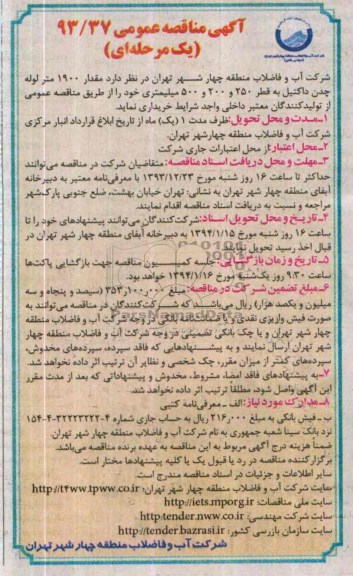 آگهی مناقصه عمومی ۹۳/۳۷
(یک مرحله‌ای)
شرکت آب و فاضلاب منطقه چهار شهر تهران در نظر دارد مقدار ۱۹۰۰ متر لوله
چدن داکتیل به قطر ۲۵۰ و ۲۰۰ و ۵۰۰ میلیمتری خود را از طریق مناقصه عمومی
از تولیدکنندگان معتبر داخلی واجد شرایط خریداری نماید.
۱ـ مدت و محل تحویل: ظرف مدت ۱ (یک) ماه از تاریخ ابلاغ قرارداد انبار مرکزی
شرکت آب و فاضلاب منطقه چهارشهر تهران.
۲ـ محل اعتبار: از محل اعتبارات جاری شرکت
۳ـ مهلت و محل دریافت اسناد مناقصه: متقاضیان شرکت در مناقصه می‌توانند
حداکثر تا ساعت ۱۶ روز شنبه مورخ ۱۳۹۳/۱۲/۲۳ با معرفی‌نامه معتبر به دبیرخانه
آبفای منطقه چهار شهر تهران به نشانی: تهران خیابان بهشت، ضلع جنوبی پارک‌شهر
مراجعه و نسبت به دریافت اسناد مناقصه اقدام نمایند.
۴ـ تاریخ و محل تحویل اسناد: شرکت‌کنندگان می‌توانند پیشنهادهای خود را تا
ساعت ۱۶ روز شنبه مورخ ۱۳۹۴/۱/۱۵ به دبیرخانه آبفای منطقه چهار شهر تهران در
قبال اخذ رسید تحویل نمایند.
۵ـ تاریخ و زمان بازگشایی: جلسه کمیسیون مناقصه جهت بازگشایی پاکت‌ها
ساعت ۹:۳۰ روز یک‌شنبه مورخ ۱۳۹۴/۱/۱۶ خواهد بود.
۶ـ مبلغ تضمین شرکت در مناقصه: مبلغ ۳۵۳,۱۰۰,۰۰۰ (سیصد و پنجاه و سه
میلیون و یکصد هزار) ریال می‌باشد که شرکت‌کنندگان در مناقصه می‌توانند به
صورت فیش واریزی نقدی و یا ضمانت‌نامه بانکی در وجه شرکت آب و فاضلاب منطقه
چهار شهر تهران و یا چک بانکی تضمینی در وجه شرکت آب و فاضلاب منطقه چهار
شهر تهران ارسال نمایند و به پیشنهادهایی که فاقد سپرده، سپرده‌های مخدوش،
سپرده‌های کمتر از میزان مقرر، چک شخصی و نظایر آن ترتیب اثر داده نخواهد شد.
۷ـ به پیشنهادهای فاقد امضا، مشروط، مخدوش و پیشنهاداتی که بعد از مدت مقرر
این آگهی واصل شود، مطلقاً ترتیب اثر داده نخواهد شد.
۸ـ مدارک مورد نیاز: الف ـ معرفی‌نامه کتبی
ب ـ فیش بانکی به مبلغ ۲۱۶,۰۰۰ ریال به حساب جاری شماره ۴-۳۲۲۲۳۲۲۲-۴-۱۵۴
نزد بانک سینا شعبه جمهوری به نام شرکت آب و فاضلاب منطقه چهار شهر تهران.
ضمناً هزینه درج آگهی مربوط به این مناقصه به عهده برنده مناقصه می‌باشد.
برگزارکننده مناقصه در رد یا قبول یک یا کلیه پیشنهادها مختار است.
سایر اطلاعات و جزئیات در اسناد مناقصه مندرج است.
سایت شرکت آب و فاضلاب منطقه چهار شهر تهران: http://t4ww.tpww.co.ir
سایت ملی مناقصات: http://iets.mporg.ir
سایت شرکت مهندسی: http:tender.nww.co.ir
سایت سازمان بازرسی کشور: http://tender.bazrasi.ir
شرکت آب و فاضلاب منطقه چهار شهر تهران